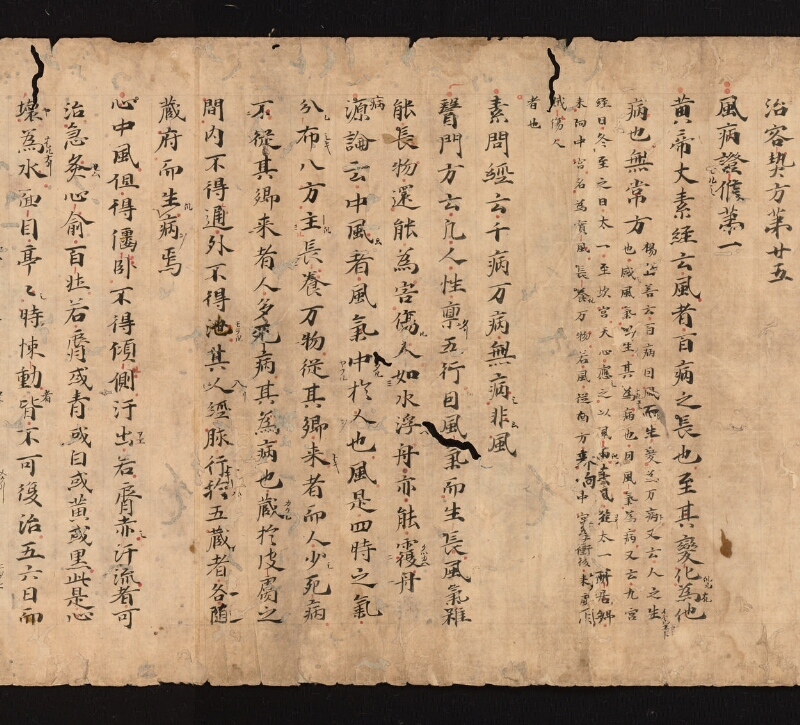 治客熱方第廿五
風病證候第一
黃帝大素經云風者百病之長也至其變化爲他
病也無常方
楊上善云百病因風而生變爲万病又云人之生
也感風氣以生其爲病也因風氣爲病又云九宮
經曰冬至之日太一至坎宮天心應之以風雨
賊傷人
者也
素問經云千病万病無病非風
醫門方云凡人性稟五行因風氣而生長風氣雖
能長物還能爲害傷人如水浮舟亦能覆舟
病源論云中風者風氣中於人也風是四時之氣
分布八方主長養万物從其鄉來者而人少死病
不從其鄉來者人多死病其爲病也藏於皮膚之
間內不得通外不得泄其以經脉行於五藏者各隨
藏府而生病焉
心中風但得偃臥不得傾側汗出若脣赤汗流者可
治急灸心俞百壯若脣或青或白或黃或黑此是心
壞爲水面目亭〻時悚動皆不可復治五六日而